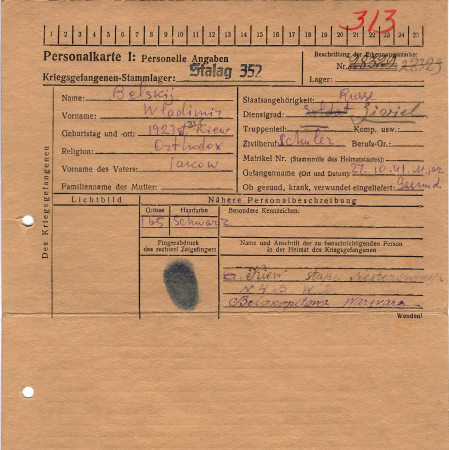 313
1 2 3 4 5 6 7 8 9 10 11 12 13 14 15 16 17 18 19 20 21 22 23 24 25
Personalkarte I: Personelle Angaben
Kriegsgefangenen-Stammlager: Stalag 352
Beschriftung der Erkennungsmarke:
Nr. 28329 28329
Lager:
Des Kriegsgefangenen
Name: Belskij
Vorname: Wladimir
Geburtstag und -ort: 1923 Kiew
Religion: Orthodox
Vorname des Vaters:
Familienname der Mutter:
Staatsangehörigkeit: Russe
Dienstgrad: Soldat Zivil
Truppenteil: Komp. usw.:
Zivilberuf: Schuler Berufs-Gr.:
Matrikel Nr. (Stammrolle des Heimatstaates):
Gefangennahme (Ort und Datum): 27.10.41
Ob gesund, krank, verwundet eingeliefert: Gesund
Lichtbild
Nähere Personalbeschreibung
Grösse
Haarfarbe
Besondere Kennzeichen:
165 Schwarz
Fingerabdruck
des rechten! Zeigefingers
Name und Anschrift der zu benachrichtigenden Person
in der Heimat des Kriegsgefangenen
Kiew
Belokopitowa Warwara
Wenden!